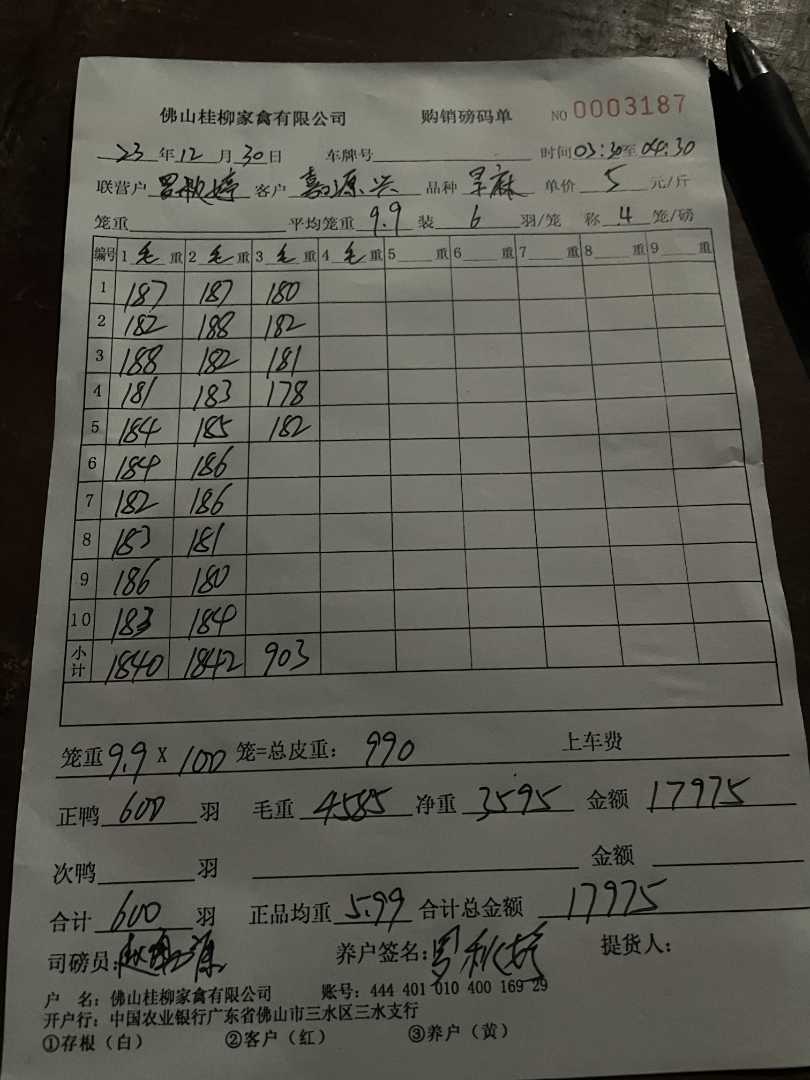 佛山桂柳家禽有限公司 购销磅码单 NO 0003187
23年12月30日 车牌号 时间03:30至04:30
联营户 客户 源兴 品种 单价 5 元/斤
笼重 平均笼重 9.9 装 6 羽/笼 称 4 笼/磅
编号 1 毛 重 2 毛 重 3 毛 重 4 毛 重 5 重 6 重 7 重 8 重 9 重
1 187 187 180
2 182 188 182
3 188 182 181
4 181 183 178
5 184 185 182
6 184 186
7 182 186
8 183 181
9 186 180
10 183 184
小计 1840 1842 903
笼重 9.9 X 100 笼=总皮重: 990 上车费
正鸭 600 羽 毛重 4585 净重 3595 金额 17975
次鸭 羽 金额
合计 600 羽 正品均重 5.99 合计总金额 17975
司磅员: 养户签名: 提货人:
户 名: 佛山桂柳家禽有限公司 账号: 444 401 010 400 169 29
开户行: 中国农业银行广东省佛山市三水区三水支行
①存根(白) ②客户(红) ③养户(黄)